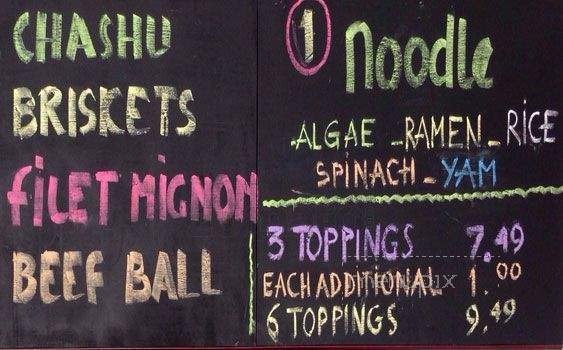 CHASHU
BRISKETS
FILET MIGNON
BEEF BALL
1 Noodle
-ALGAE -RAMEN- RICE
SPINACH - YAM
3 TOPPINGS 7.49
EACH ADDITIONAL 1.00
6 TOPPINGS 9.49